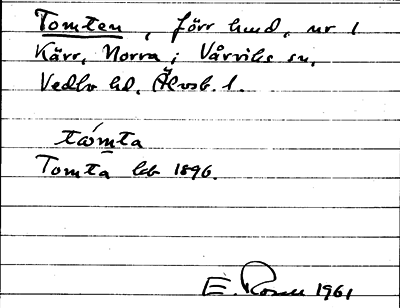 Tomten, förr lund, nr 1
Kärr, Norra; Vårviks sn,
Vedbo hd. Älvsb. l.
tómta
Tomta lkb 1896.
E. Rosell 1961